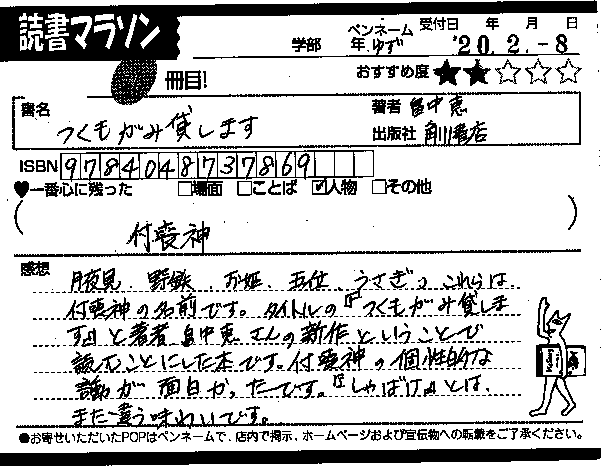 読書マラソン
冊目!
学部 年
ペンネーム ゆず
受付日 年 月 日
'20. 2. -8
おすすめ度 ★★☆☆☆
書名
つくもがみ貸します
著者 畠中恵
出版社 角川書店
ISBN 9784048737869
♥一番心に残った □場面 □ことば ☑人物 □その他
(付喪神)
感想
月夜見、野鉄、お姫、五位、うさぎ。これらは
付喪神の名前です。タイトルの『つくもがみ貸しま
す』と著者畠中恵さんの新作ということで
読むことにした本です。付喪神の個性的な
語りが面白かったです。『しゃばけ』とは、
また違う味わいです。
●お寄せいただいたPOPはペンネームで、店内で掲示、ホームページおよび宣伝物への転載をご了承ください。